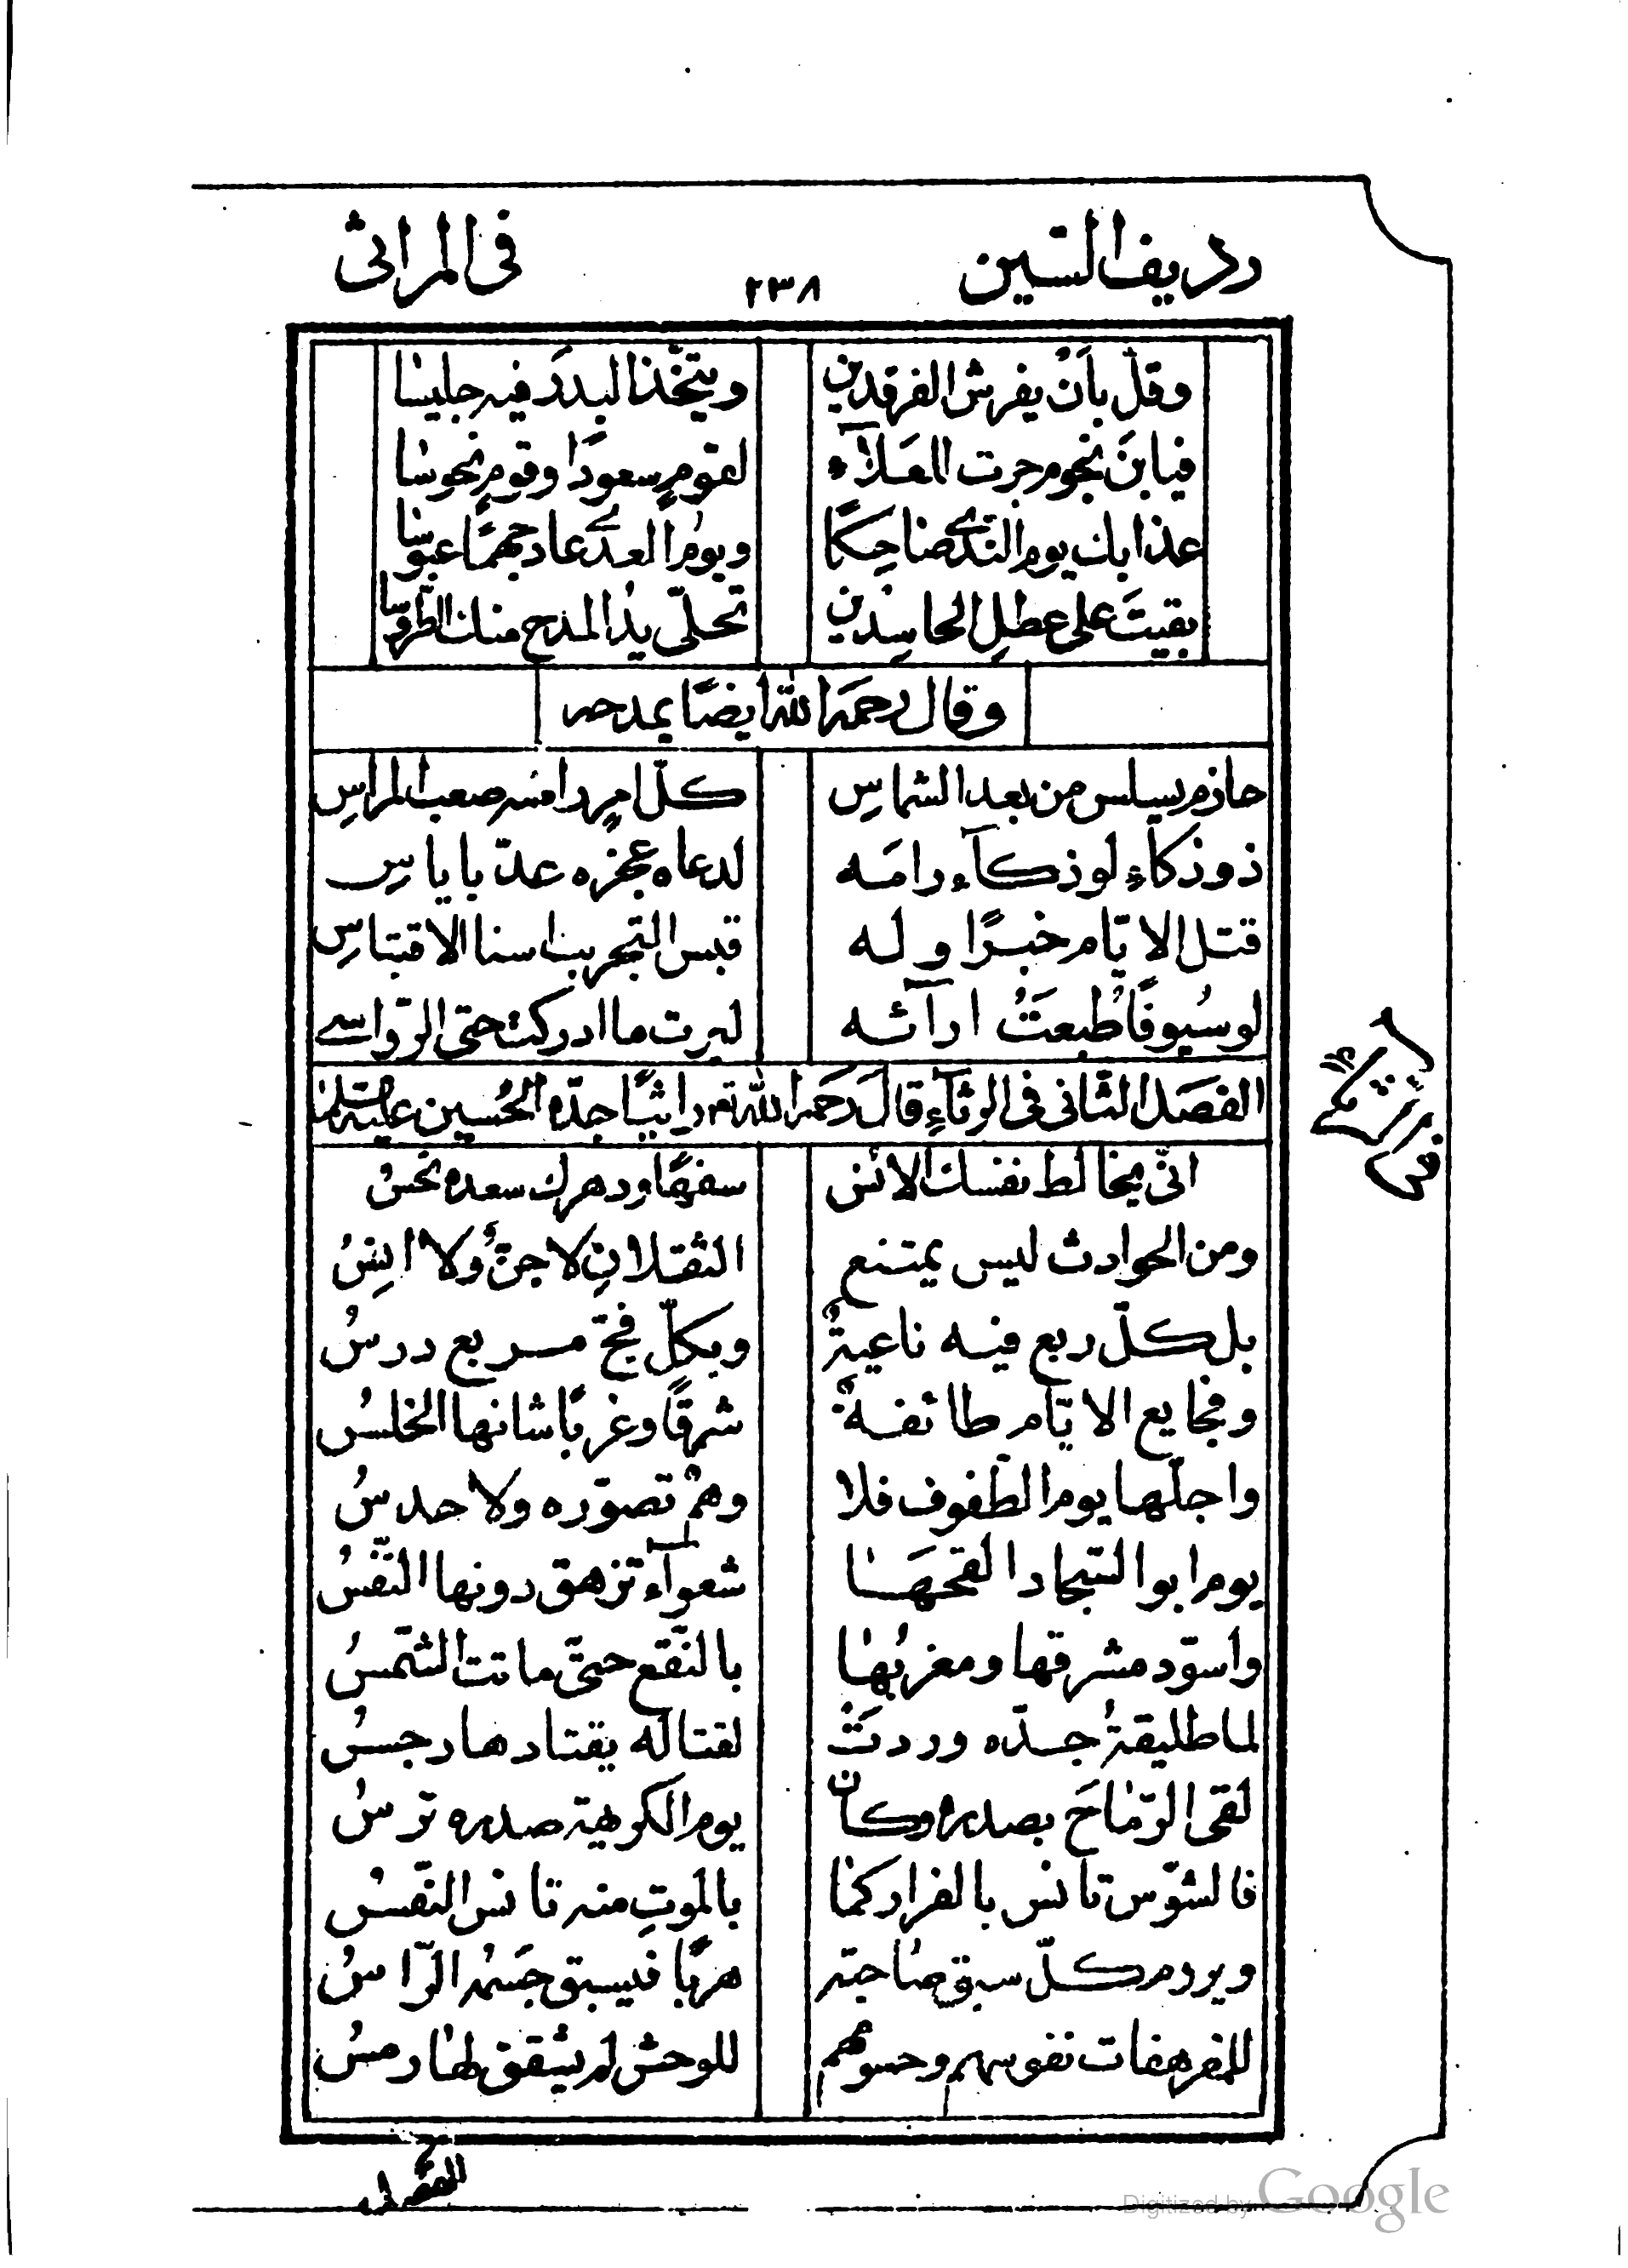 رديف السّين ٢٣٨ فى المراثى
وقلّ بأن يفرش الفرقدين ويتّخذ البدر فيه جليسا
فيا بن نجوم جرت للعلآء لقوم سعودًا وقوم نحوسا
غذا بك يوم النّدى ضاحكًا ويوم العدى عاد جهمًا عبوسا
بقيت على عطل الحاسدين تحلّى يد المدح منك الطّروسا
وقال رحمه الله ايضًا يمدحه
حازم يسلس من بعد الشماس كلّ امر رامه صعب المراس
ذو ذكاء لو ذكآء رامه لدعاه عجزه عدّ باياس
قتل الايّام خبرًا وله قبس التجريب اسنا الاقتباس
لو سيوفًا طبعت ارآئه لبرت ما ادركت حتى الرّواسى
الفصل الثّانى فى الرثآء قال رحمه الله تع راثيًا جدّه الحسين عليه السّلم
انّى يخالط نفسك الانس سفهًا ودهرك سعده نحس
ومن الحوادث ليس يمتنع الثقلان لا جنّ ولا انس
بل كلّ ربع فيه ناعية وبكلّ فجّ مربع درس
وفجايع الايّام طائفة شرقًا وغربًا شانها الخلس
واجلّها يوم الطّفوف فلا وهم تصوّره ولا حدس
يوم ابو السّجاد القحها شعوآء تزهق دونها النّفس
واسوّد مشرقها ومغربها بالنّقع حتّى ماتت الشّمس
لما طليقة جدّه وردت لقتاله يقتادها رجس
لقى الرّماح بصدره وكان يوم الكريهة صدره ترس
فالشوّس تانس بالفرار كما بالموت منه تانس النّفس
ويروم كلّ سبق صاحبه هربًا فيسبق جسمه الرّاس
للمرهفات نفوسهم وجسومهم للوحش لم يشقق لها رمس